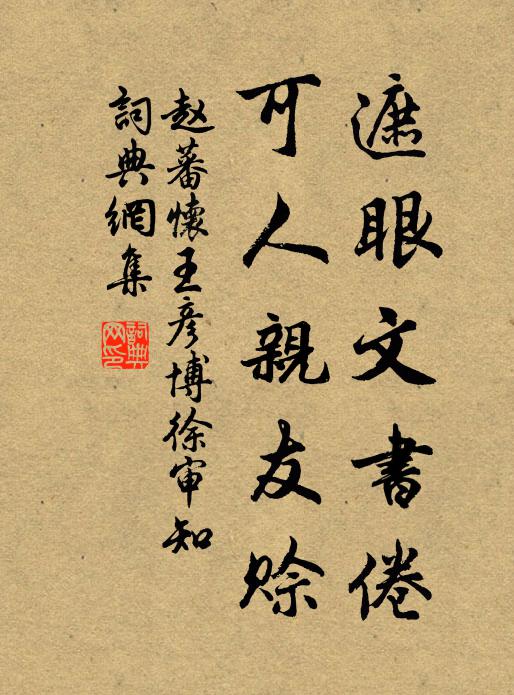 遮眼文書倦
可人親友賒
赵蕃懷王彥博徐审知
詞典網集
詞典网印